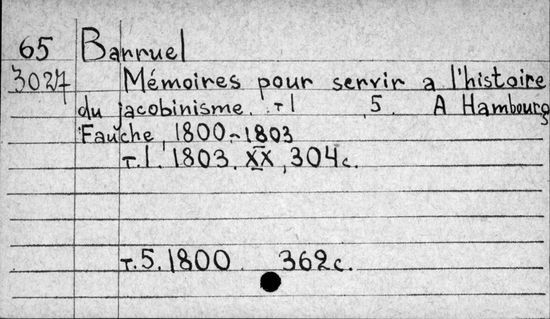 65 Barruel
3027 Mémoires pour servir a l'histoire
du jacobinisme. т 1 5. A Hambourg
Fauche, 1800-1803
т.1. 1803. XX, 304 с.
т.5. 1800. 362 с.